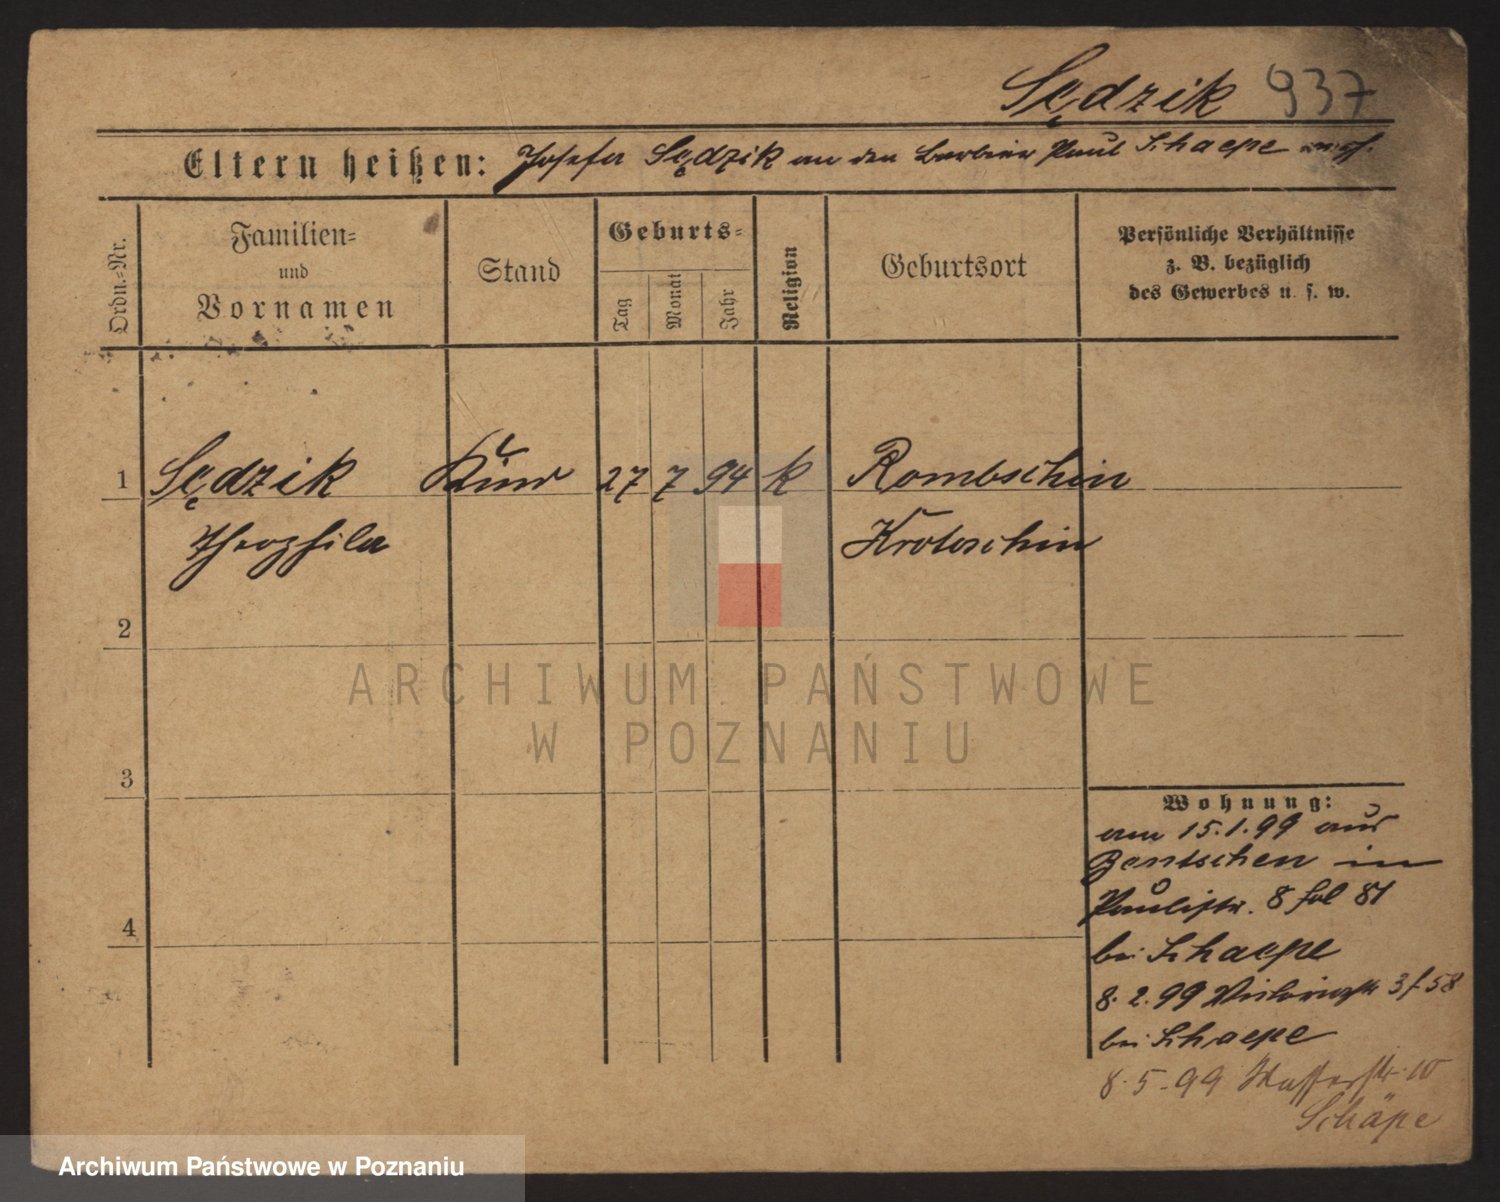 Sędzik 937
Eltern heißen: Josefa Sędzik an den Barbier Paul Schaepe
Ordn.-Nr.
Familien-
und
Vornamen
Stand
Geburts-
Tag
Monat
Jahr
Religion
Geburtsort
Persönliche Verhältnisse
z. B. bezüglich
des Gewerbes u. s. w.
1 Sędzik Kind 27 7 94 k Rombschin
Theophila Krotoschin
2
3
4
Wohnung:
am 15.1.99 aus
Bentschen in
Paulistr. 8 fol 81
bei Schaepe
8.2.99 Victoriastr 3 f 58
bei Schaepe
8.5.99 Wasserstr. 10
Schäpe
ARCHIWUM PAŃSTWOWE
W POZNANIU
Archiwum Państwowe w Poznaniu